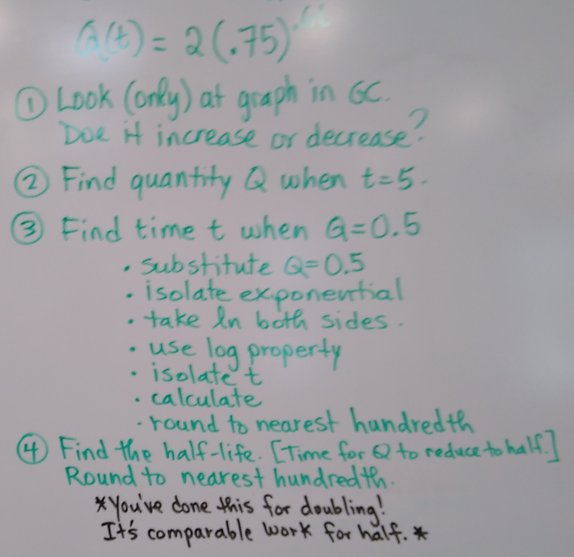 Q(t) = 2(.75)
① Look (only) at graph in GC.
Doe it increase or decrease?
② Find quantity Q when t=5.
③ Find time t when Q=0.5
• substitute Q=0.5
• isolate exponential
• take ln both sides.
• use log property
• isolate t
• calculate
• round to nearest hundredth
④ Find the half-life. [Time for Q to reduce to half.]
Round to nearest hundredth.
*You've done this for doubling!
It's comparable work for half.*